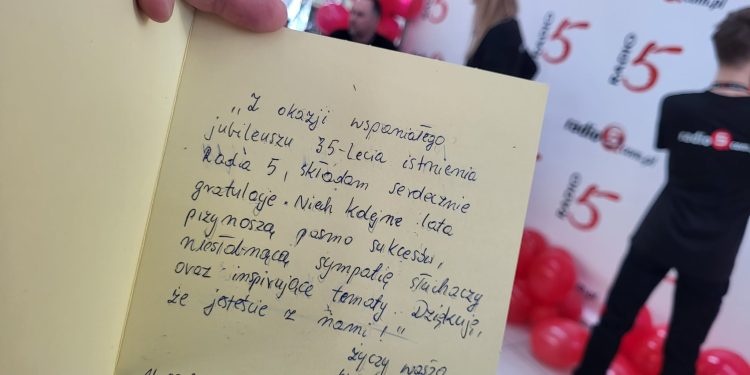 "Z okazji wspaniałego
jubileuszu 35-lecia istnienia
Radia 5, składam serdecznie
gratulacje. Niech kolejne lata
przynoszą pasmo sukcesów,
niesłabnącą sympatię słuchaczy
oraz inspirujące tematy. Dziękuję,
że jesteście z nami!"
życzy wasza
RADIO 5
RADIO 5
radio5.com.pl
radio5.com
RADIO 5
.com.pl